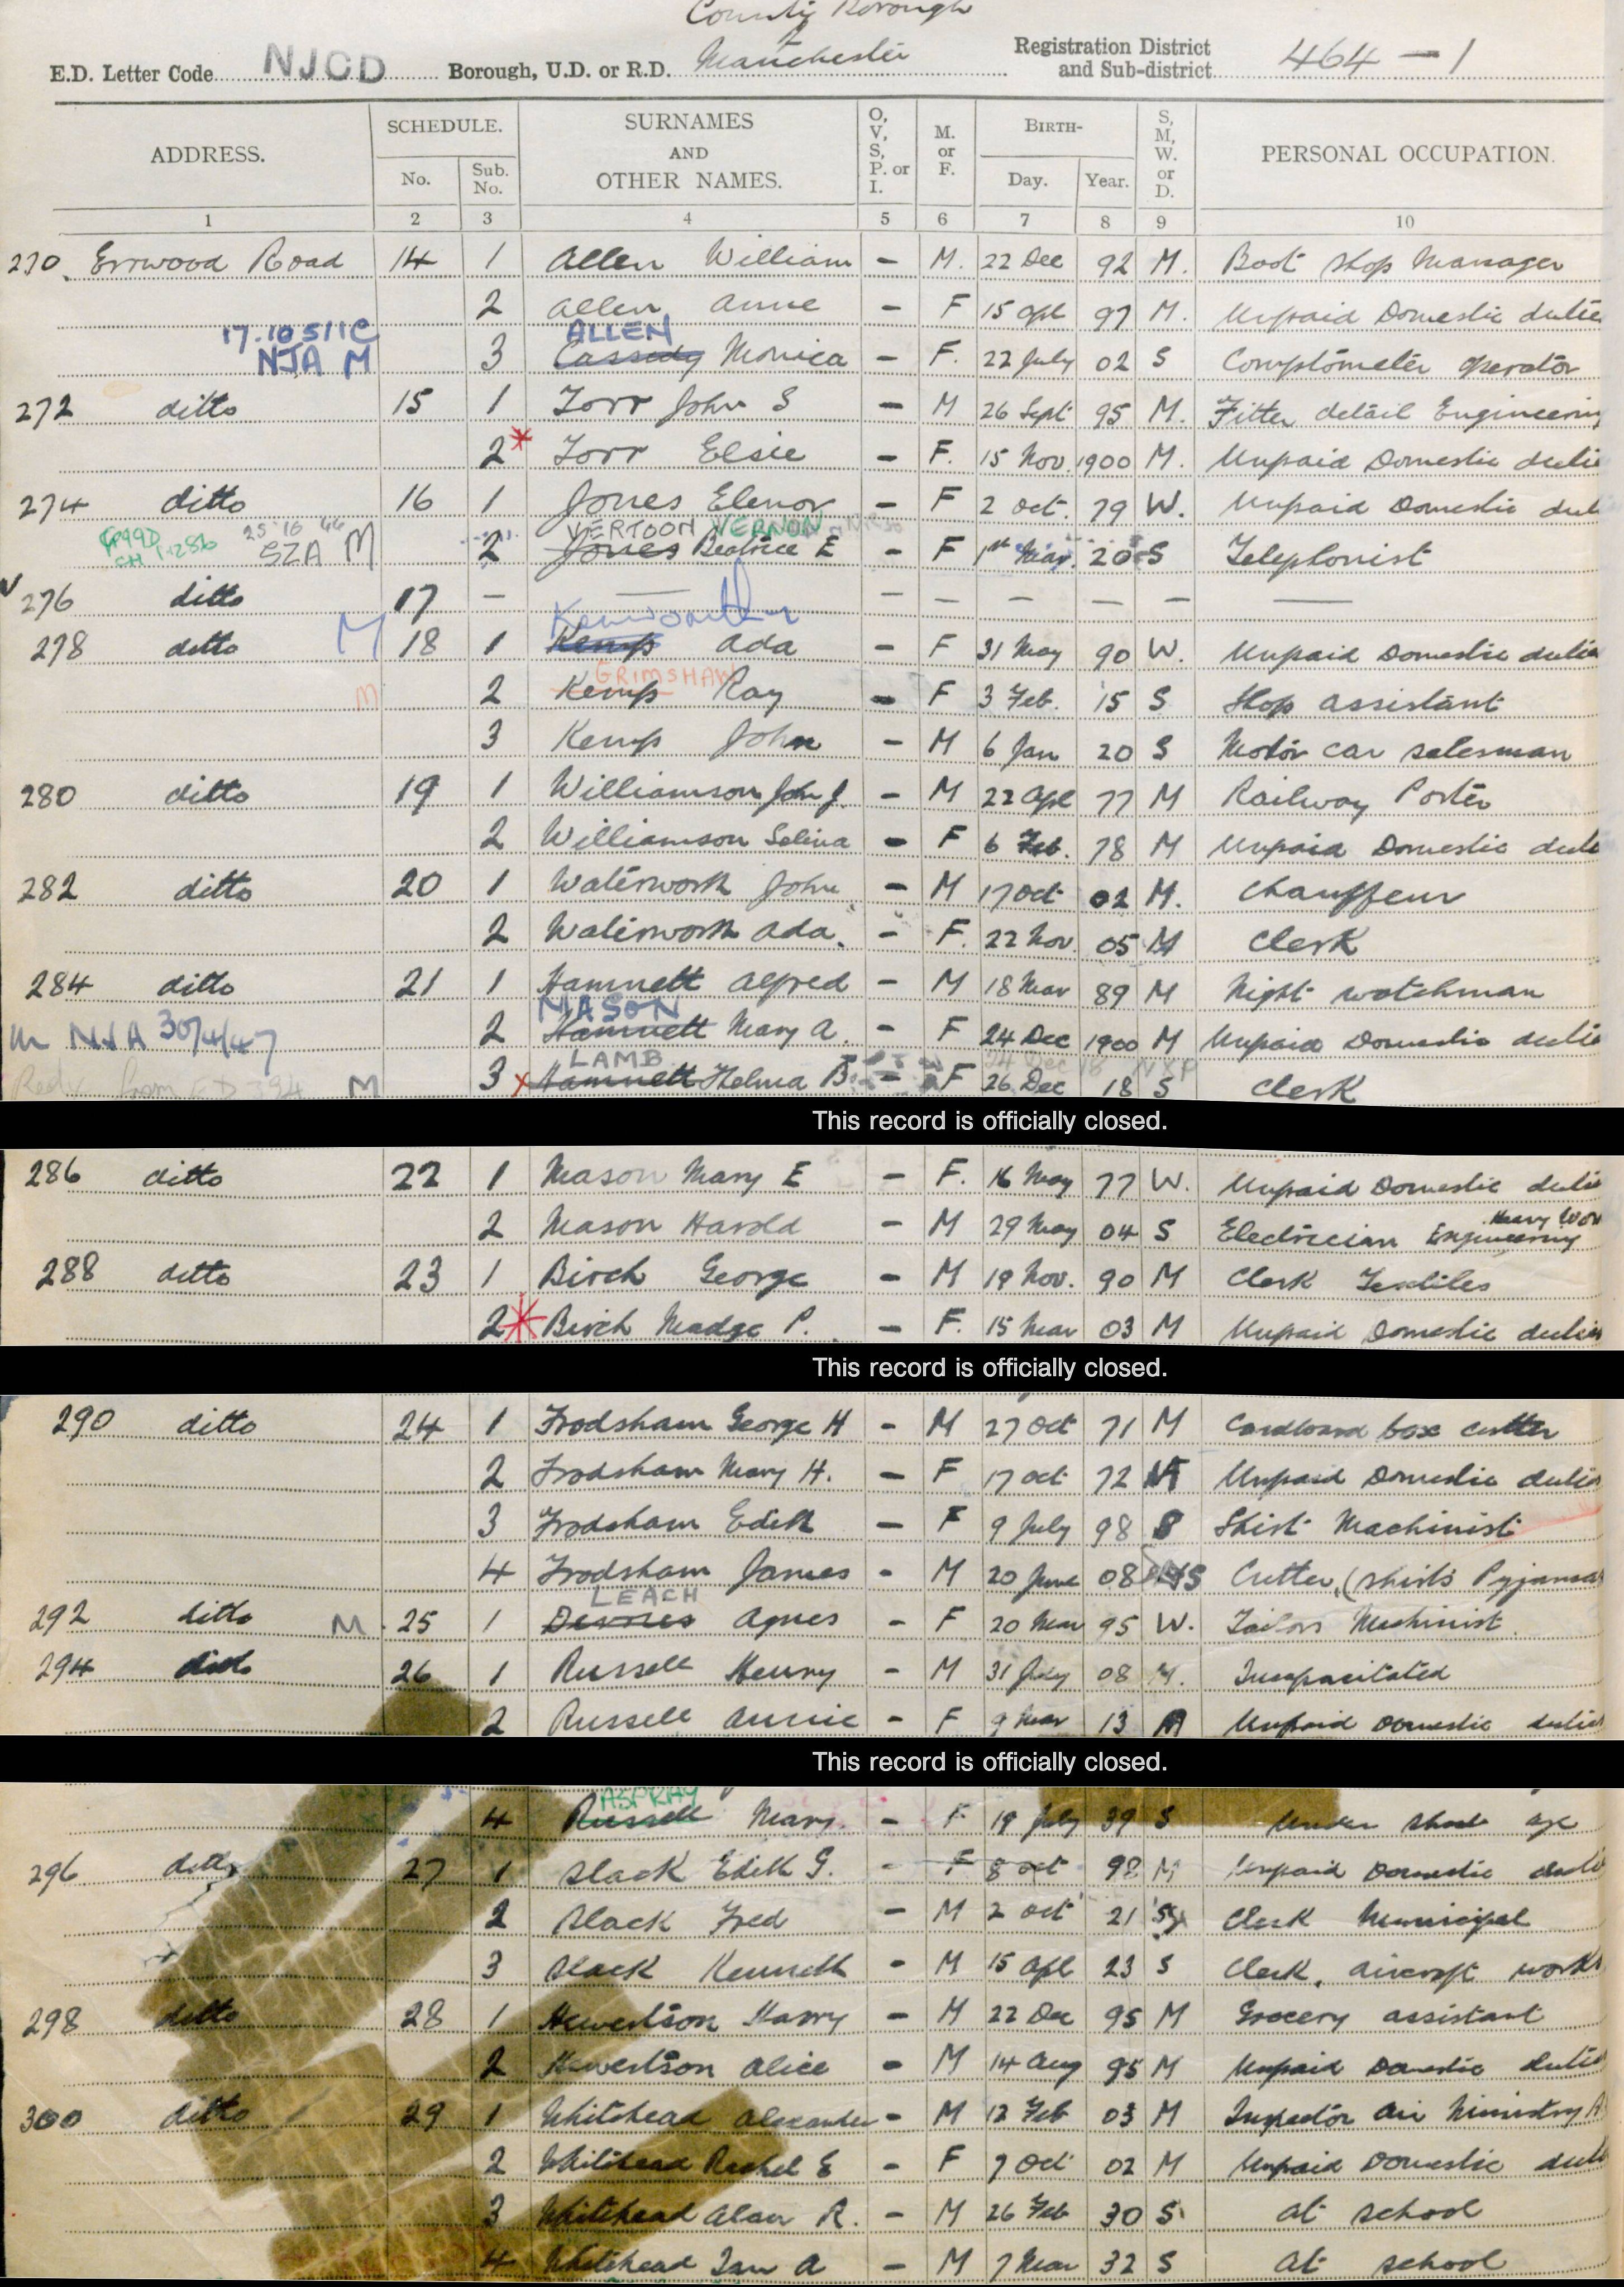 County Borough
of
E.D. Letter Code NJCD Borough, U.D. or R.D. Manchester Registration District and Sub-district 464 - 1
ADDRESS. SCHEDULE. No. Sub. No. SURNAMES AND OTHER NAMES. O, V, S, P. or I. M. or F. BIRTH- Day. Year. S, M, W. or D. PERSONAL OCCUPATION.
1 2 3 4 5 6 7 8 9 10
270 Errwood Road 14 1 Allen William - M. 22 Dec 92 M. Boot Shop Manager
2 Allen Anne - F 15 Apl 97 M. Unpaid Domestic dutie
17.10.51 IC ALLEN
NJA M 3 Cassedy Monica - F. 22 July 02 S Comptometer Operator
272 ditto 15 1 Torr John S - M 26 Sept 95 M. Fitter detail Engineering
2 * Torr Elsie - F. 15 Nov. 1900 M. Unpaid Domestic dutie
274 ditto 16 1 Jones Elenor - F 2 Oct. 79 W. Unpaid Domestic duti
25 10 46 VERTOON VERNON
SZA M 2 Jones Beatrice E - F 1st May. 20 S Telephonist
276 ditto 17 - — - - - - - —
Kenworthy
278 ditto M 18 1 Kemp Ada - F 31 May 90 W. Unpaid Domestic dutie
GRIMSHAW
M 2 Kemp Kay - F 3 Feb. 15 S Shop assistant
3 Kemp John - M 6 Jan 20 S Motor car salesman
280 ditto 19 1 Williamson John J. - M 22 Apl 77 M Railway Porter
2 Williamson Selina - F 6 Feb. 78 M Unpaid Domestic duti
282 ditto 20 1 Waterwork John - M 17 Oct 02 M. Chauffeur
2 Waterwork Ada. - F. 22 Nov. 05 M Clerk
284 ditto 21 1 Hamnett Alfred - M 18 Mar 89 M Night watchman
MASON
m NJA 30/4/47 2 Hamnett Mary A. - F 24 Dec 1900 M Unpaid Domestic dutie
LAMB 24 Dec 18 NXP
Redx from ED 394 M 3 x Hamnett Thelma B - F 26 Dec 18 S Clerk
This record is officially closed.
286 ditto 22 1 Mason Mary E - F. 16 May 77 W. Unpaid Domestic dutie
2 Mason Harold - M 29 May 04 S Electrician Engineering Heavy Wor
288 ditto 23 1 Birch George - M 19 Nov. 90 M Clerk Textiles
2 * Birch Madge P. - F. 15 Mar 03 M Unpaid Domestic duties
This record is officially closed.
290 ditto 24 1 Frodsham George H - M 27 Oct 71 M Cardboard box cutter
2 Frodsham Mary H. - F 17 Oct 72 M Unpaid Domestic duties
3 Frodsham Edith - F 9 July 98 S Shirt Machinist
4 Frodsham James - M 20 June 08 S Cutter, (shirts Pyjamas
LEACH
292 ditto M 25 1 Agnes - F 20 Mar 95 W. Tailors Machinist
294 ditto 26 1 Russell Henry - M 31 July 08 M. Incapacitated
2 Russell Annie - F 9 Mar 13 M Unpaid Domestic duties
This record is officially closed.
ASPRAY
4 Russell Mary - F 19 July 39 S Under School age
296 ditto 27 1 Slack Edith G. - F 8 Oct 98 M Unpaid Domestic dutie
2 Slack Fred - M 2 Oct 21 S Clerk Municipal
3 Slack Kenneth - M 15 Apl 23 S Clerk, aircraft works
298 ditto 28 1 Hewertson Harry - M 22 Dec 95 M Grocery assistant
2 Hewertson Alice - M 14 Aug 95 M Unpaid Domestic duties
300 ditto 29 1 Whitehead Alexander - M 12 Feb 03 M Inspector Air Ministry A
2 Whitehead Rachel E - F 7 Oct 02 M Unpaid Domestic duti
3 Whitehead Alan R. - M 26 Feb 30 S At School
4 Whitehead Ian A - M 7 Mar 32 S At school